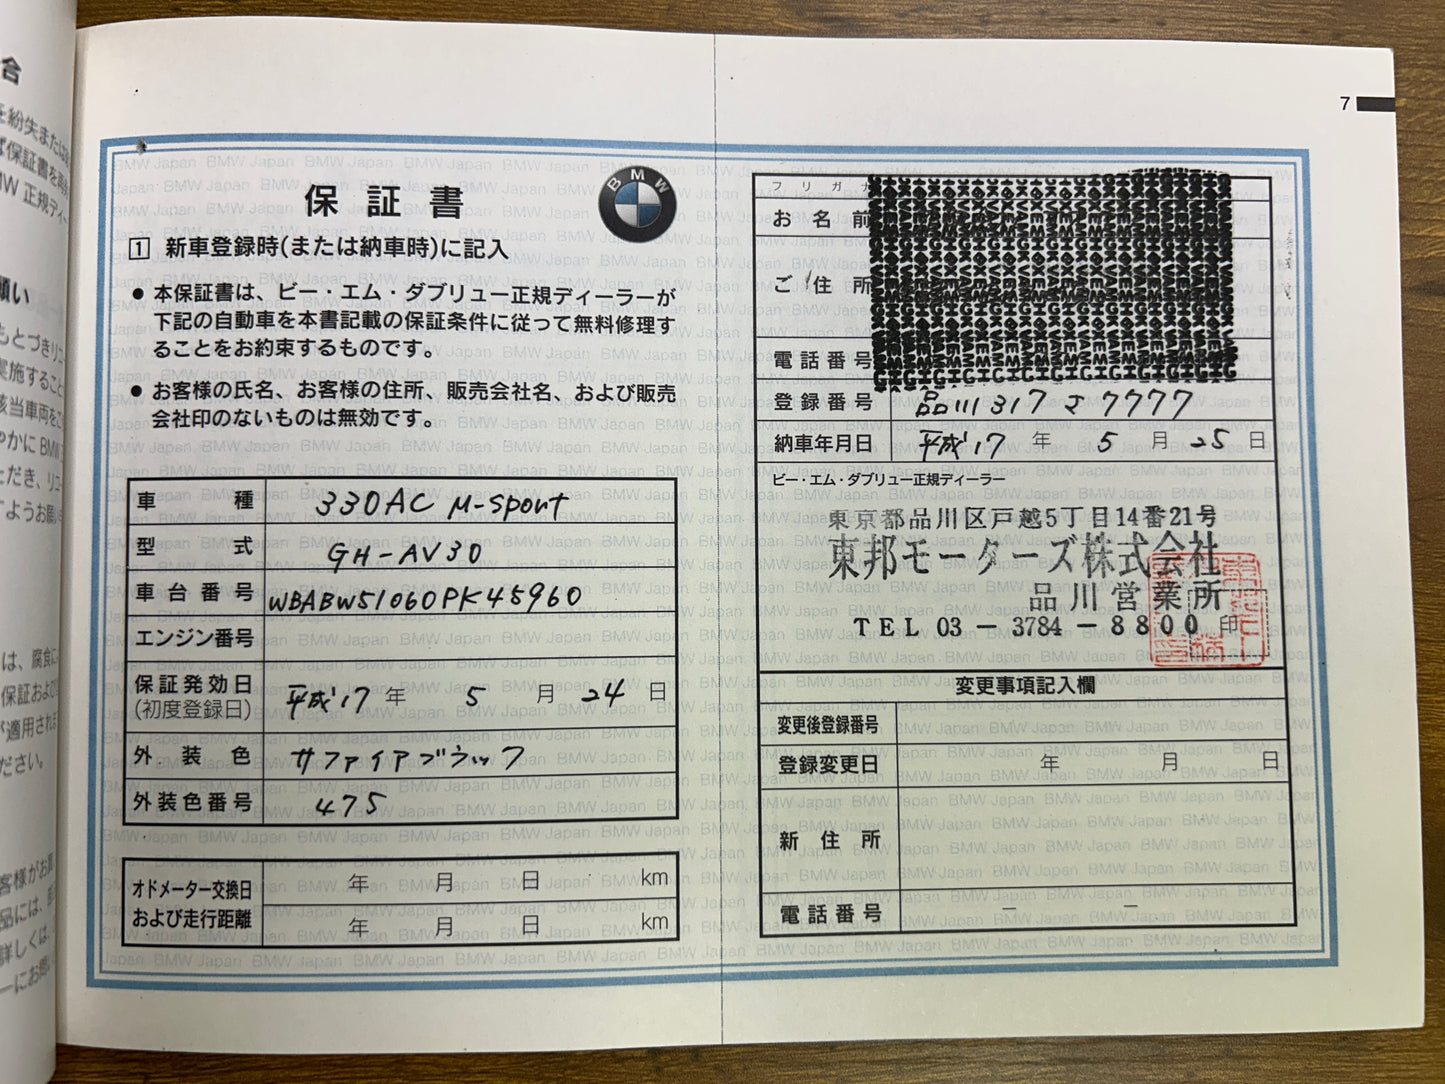 合
願い
7
保証書
BMW
1 新車登録時(または納車時)に記入
● 本保証書は、ビー・エム・ダブリュー正規ディーラーが
下記の自動車を本書記載の保証条件に従って無料修理す
ることをお約束するものです。
● お客様の氏名、お客様の住所、販売会社名、および販売
会社印のないものは無効です。
車種 330AC M-Sport
型式 GH-AV30
車台番号 WBABW51060PK45960
エンジン番号
保証発効日
(初度登録日) 平成17年 5月 24日
外装色 サファイアブラック
外装色番号 475
オドメーター交換日
および走行距離
年 月 日 km
年 月 日 km
フリガナ
お名前
ご住所
電話番号
登録番号 品川317 さ 7777
納車年月日 平成17年 5月 25日
ビー・エム・ダブリュー正規ディーラー
東京都品川区戸越5丁目14番21号
東邦モーターズ株式会社
品川営業所
TEL 03-3784-8800 印
変更事項記入欄
変更後登録番号
登録変更日 年 月 日
新住所
電話番号 － －